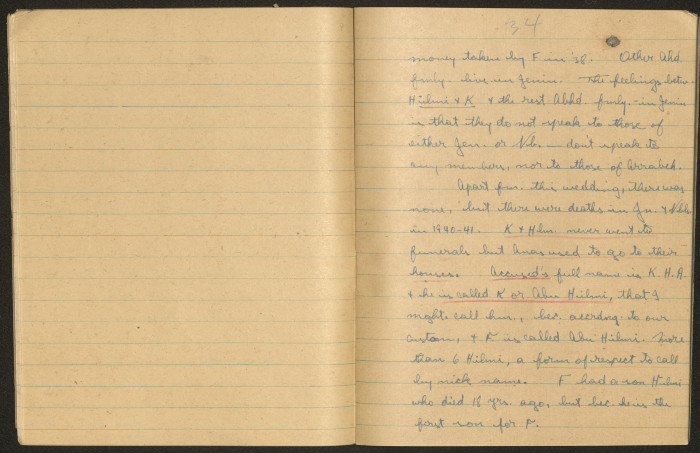 34
money taken by F in '38. Other Ahd.
fmly. live in Jenin. The feelings betw.
Hilmi & K & the rest Abhd. fmly. in Jenin
is that they do not speak to those of
either Jen. or Nb. — don't speak to
any members, nor to those of Arrabeh.
Apart from this wedding, there was
none, but there were deaths in Jn. & Nbl.
in 1940-41. K & Hlm. never went to
funerals but Anas used to go to their
houses. Accused's full name is K. H. A.
& he is called K or Abu Hilmi, that I
might call him, bec. accrdng. to our
custom, & F is called Abu Hilmi. More
than 6 Hilmi, a form of respect to call
by nick name. F had a son Hilmi
who died 18 yrs. ago, but bec. he is the
first son for F.